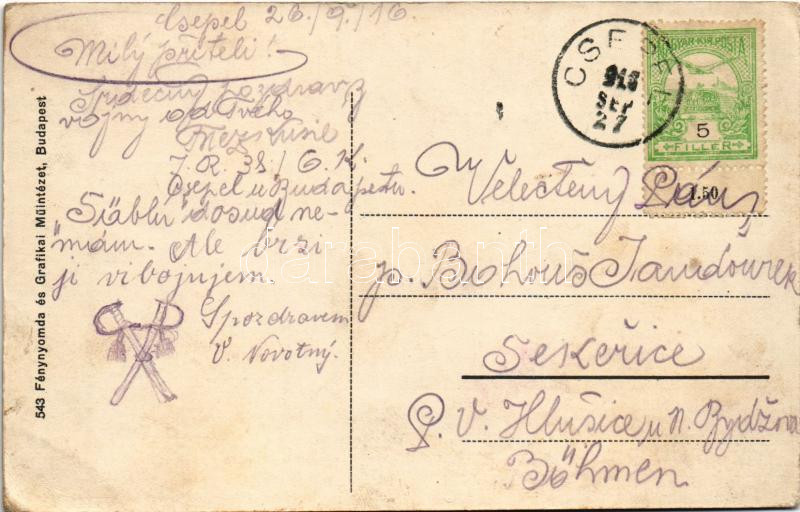 Csepel 26./9./16
Milý příteli!
Srdečný pozdrav z
vojny od Tvého
I. R. 38/6. K.
Csepel u Budapestu.
Šáblú dosud ne-
mám. Ale brzi
ji vibojujem.
S pozdravem
V. Novotný.
543 Fénynyomda és Grafikai Műintézet, Budapest
CSEPEL
916
SEP
27
MAGYAR KIR. POSTA
5
FILLÉR
1.50
Velectěný Pán,
p. Bohouš Jandourek
Sekeřice
P. V. Hlušice u N. Bydžova
Böhmen
darabanth.com